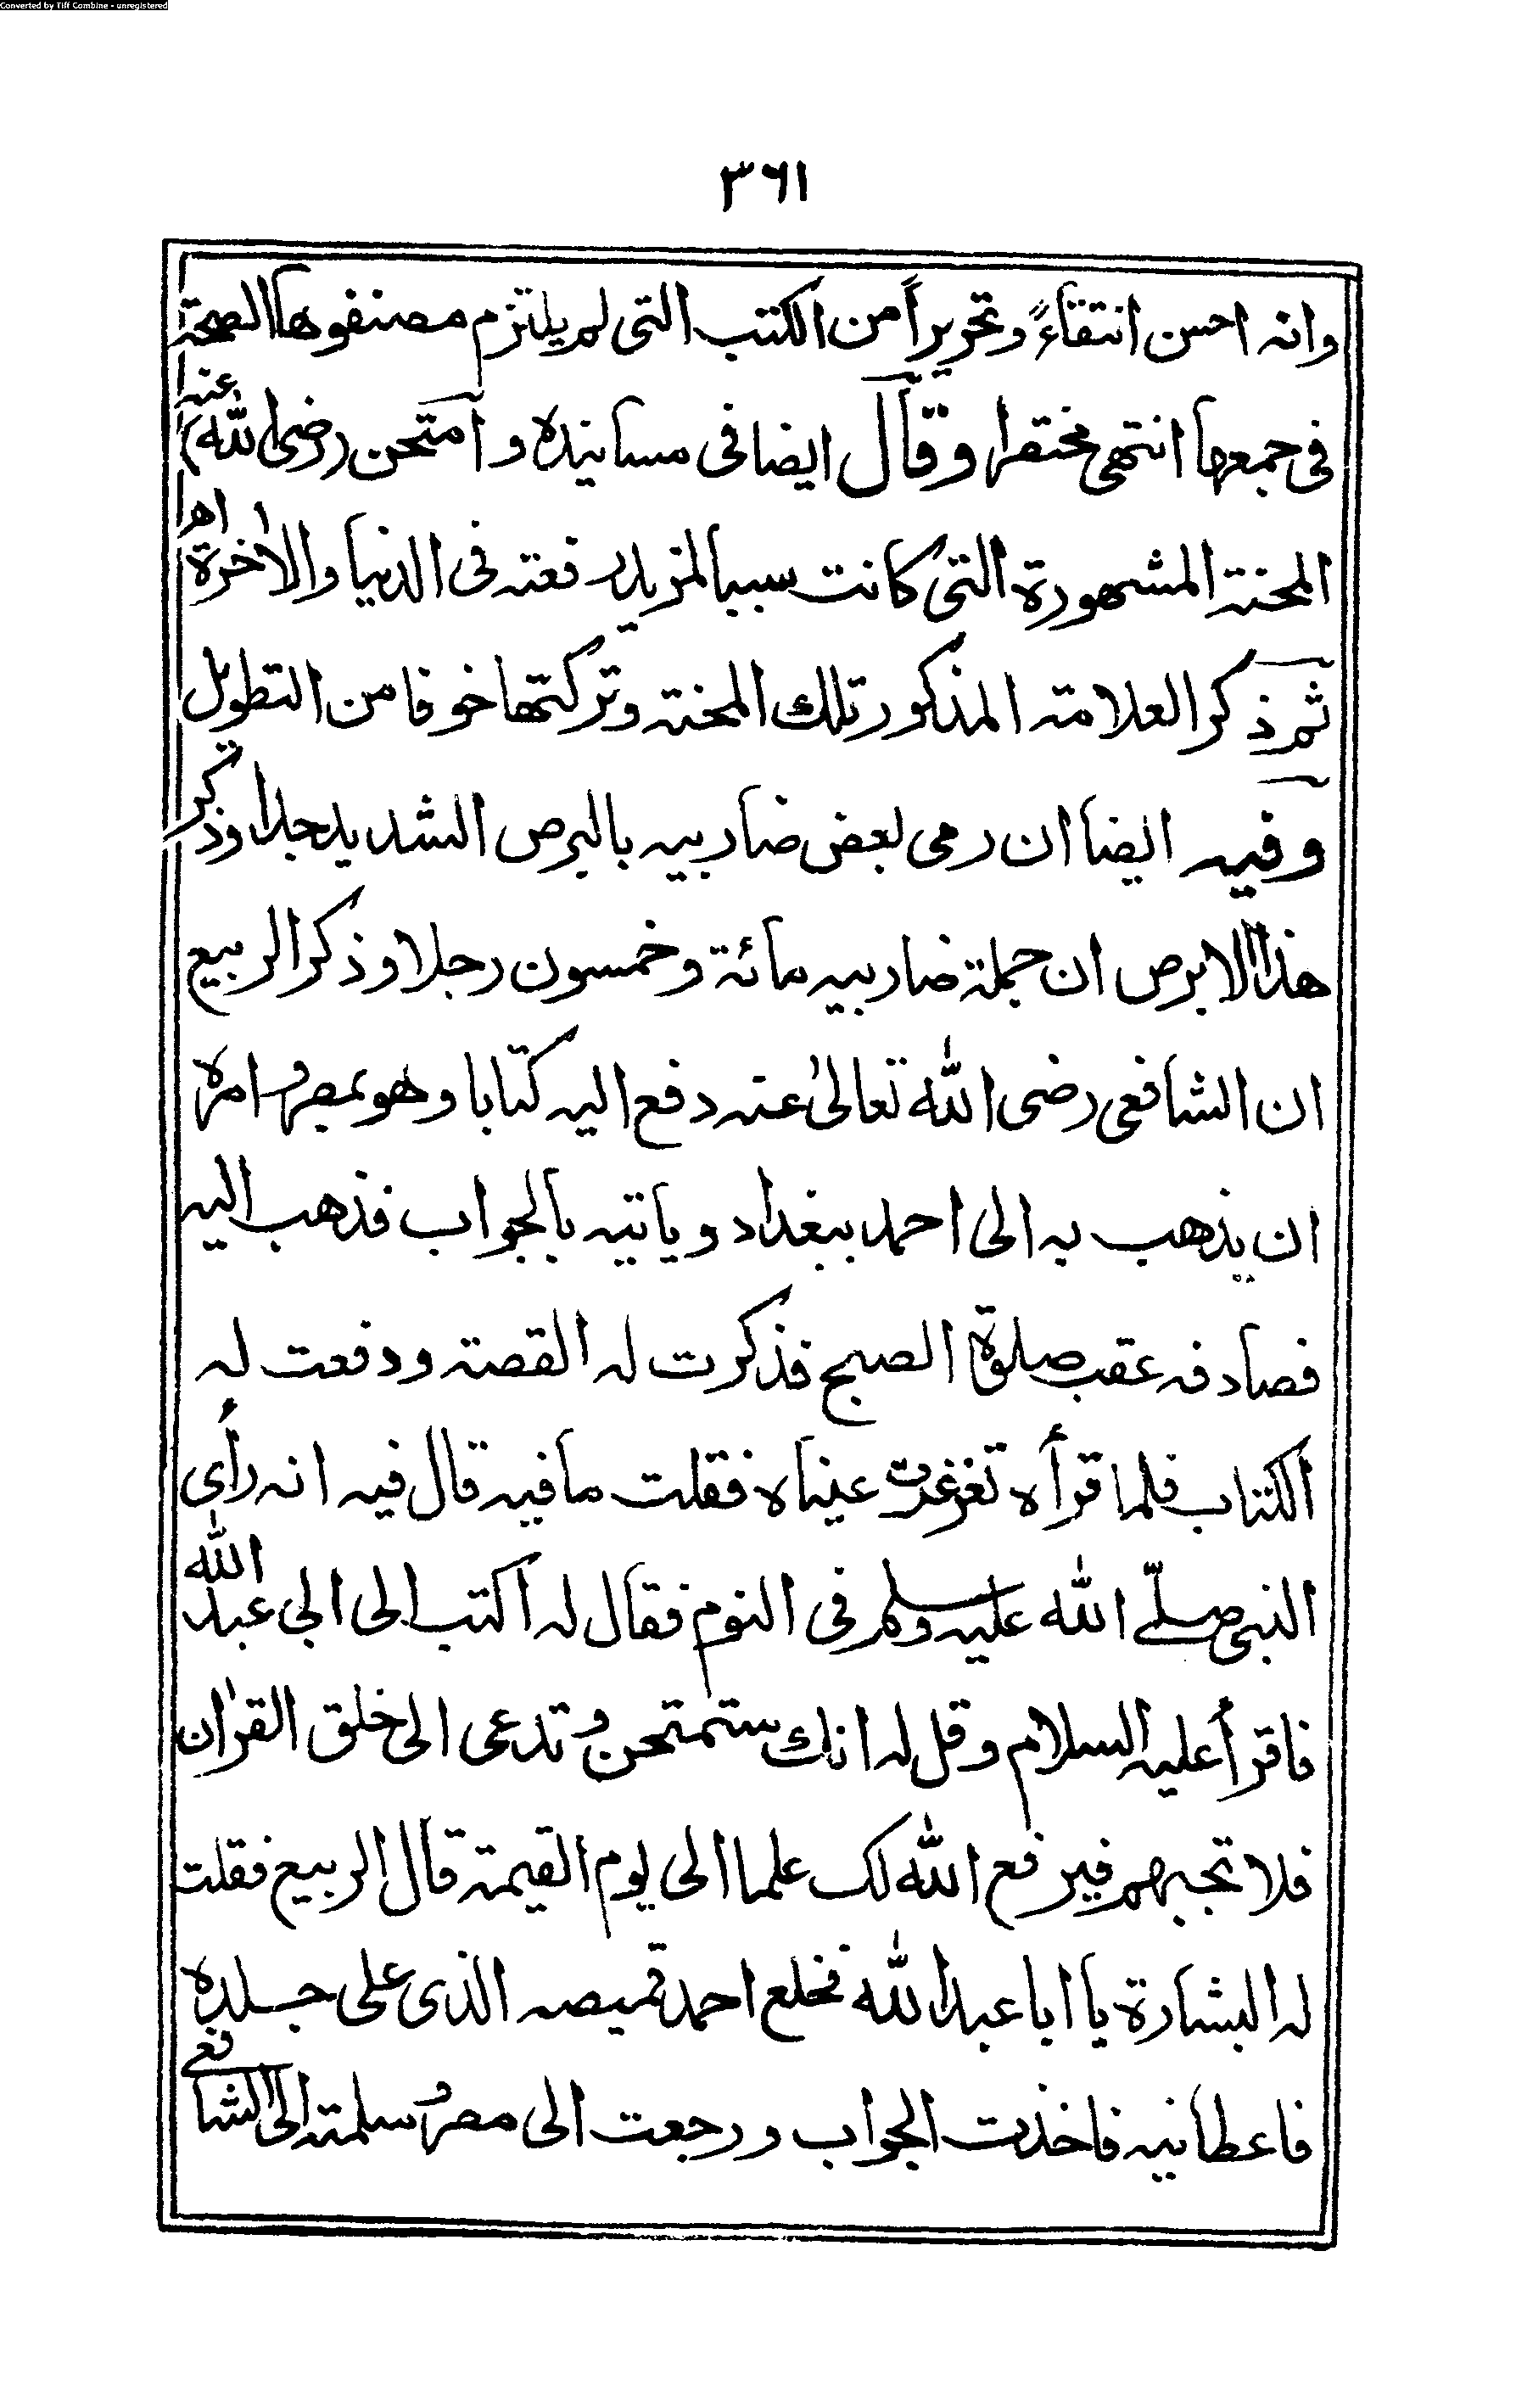 Converted by Tiff Combine - unregistered
٣٦١
وانه احسن انتقاءً وتحريراً من الكتب التى لم يلتزم مصنفوها الصحة
فى جمعها انتهى مختصرا وقال ايضا فى مسانيده وامتحن (رضى الله عنه)
المحنة المشهورة التى كانت سببا لمزيد رفعته فى الدنيا والاٰخرة اھ
ثم ذكر العلامة المذكور تلك المحنة وتركتها خوفا من التطويل
وفيه ايضا ان رمى بعض ضاربيه بالبرص الشديد جدا وذكر
هذا الابرص ان جملة ضاربيه مائة وخمسون رجلا وذكر الربيع
ان الشافعى رضى الله تعالىٰ عنه دفع اليه كتابا وهو بمصر وامره
ان يذهب به الى احمد ببغداد وياتيه بالجواب فذهب اليه
فصادفه عقب صلوة الصبح فذكرت له القصة ودفعت له
الكتاب فلما قرأه تغرغرت عيناه فقلت ما فيه قال فيه انه رأى
النبى صلّے الله عليه وسلم فى النوم فقال له اكتب الى ابى عبد الله
فاقرأ عليه السلام وقل له انك ستمتحن وتدعى الى خلق القراٰن
فلا تجبهم فيرفع الله لك علما الى يوم القيمة قال الربيع فقلت
له البشارة يا ابا عبد الله فخلع احمد قميصه الذى على جسلده
فاعطانيه فاخذت الجواب ورجعت الى مصر وسلمته الى الشافعے